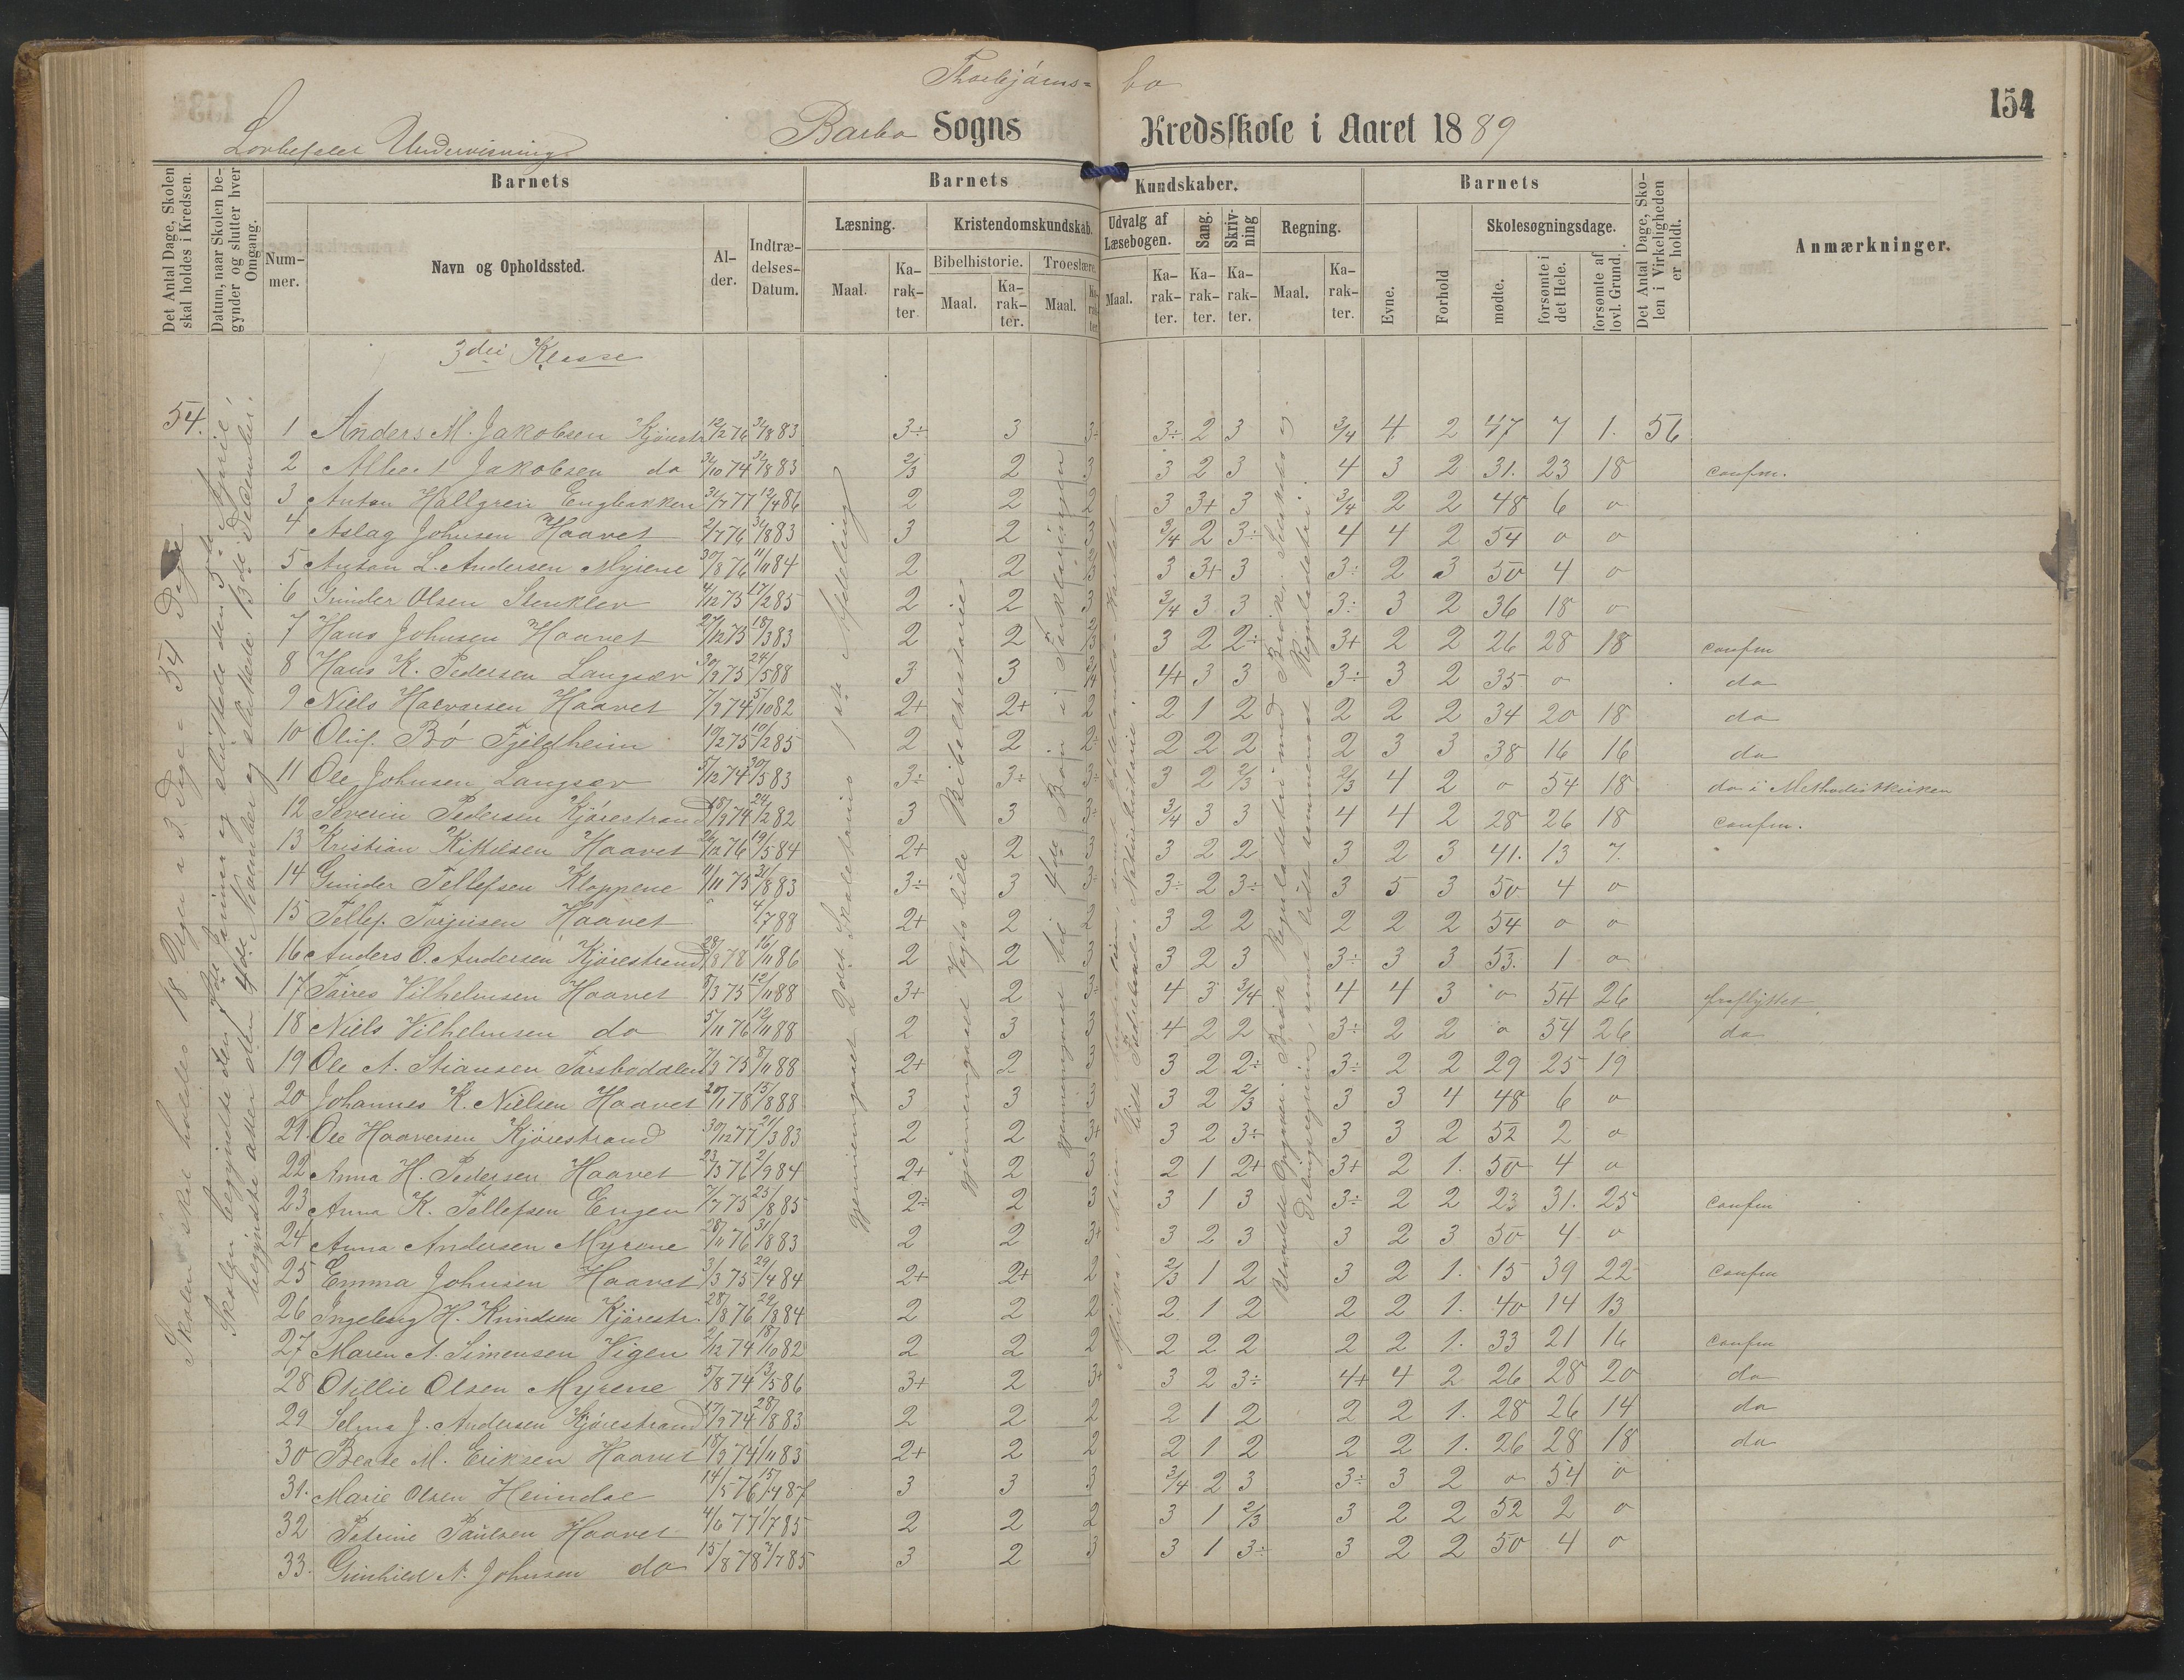 Thorbjörns= bo
154
Lovbefalet Undervisning.
Barbo Sogns Kredsskole i Aaret 1889
Det Antal Dage, Skolen skal holdes i Kredsen.
Datum, naar Skolen begynder og slutter hver Omgang.
Barnets
Nummer.
Navn og Opholdssted.
Alder.
Indtrædelses-Datum.
Barnets Kundskaber.
Læsning.
Maal.
Karakter.
Kristendomskundskab.
Bibelhistorie.
Maal.
Karakter.
Troeslære.
Maal.
Karakter.
Udvalg af Læsebogen.
Maal.
Karakter.
Sang.
Karakter.
Skrivning
Karakter.
Regning.
Maal.
Karakter.
Barnets
Evne.
Forhold
Skolesøgningsdage.
mødte.
forsømte i det Hele.
forsømte af lovl. Grund.
Det Antal Dage, Skolen i Virkeligheden er holdt.
Anmærkninger.
3die Klasse
54.
Skolen skal holdes 18 Uger a 3 Dage = 54 Dage
gjennemgaaet Vogts lille Bibelhistorie
1 Anders M. Jakobsen Kjörestr 12/2 76 31/8 83 3÷ 3 3÷ 3÷ 2 3 3/4 4 2 47 7 1. 56
2 Albert Jakobsen do 31/10 74 31/8 83 2/3 2 3 3 2 3 4 3 2 31. 23 18 confm.
3 Anton Hallgren Engbakken 31/7 77 12/4 86 2 2 2 3 3+ 3 3/4 2 2 48 6 0
4 Aslag Johnsen Haavet 2/7 76 31/8 83 3 2 3 3/4 2 3÷ 4 4 2 54 0 0
5 Anton L. Andersen Myrene 30/8 76 11/11 84 2 2 3 3 3+ 3 3÷ 2 3 50 4 0
6 Gunder Olsen Stenklev 4/12 75 17/2 85 2 2 3 3/4 3 3 3÷ 3 2 36 18 0
7 Hans Johnsen Haavet 27/12 75 18/3 83 2 2 2/3 3 2 2÷ 3+ 2 2 26 28 18 confm
8 Hans K. Pedersen Langsæv 30/9 73 24/5 88 3 3 3/4 4+ 3 3 3÷ 3 2 35 0 do
9 Niels Halvorsen Haavet 7/9 74 5/10 82 2+ 2+ 2 2 1 2 2 2 2 34 20 18 do
10 Oluf Bö Fjeldheim 10/2 75 10/2 85 2 2 2÷ 2 2 2 2 3 3 38 16 16 do
11 Ole Johnsen Langsæv 5/12 74 30/5 83 3÷ 3÷ 3÷ 3 2 2/3 2/3 4 2 0 54 18 do i Methodistkirken
12 Severin Pedersen Kjörestrand 18/9 74 24/2 82 3 3 3÷ 3/4 3 3 4 4 2 28 26 18 confm.
13 Kristian Kittilsen Haavet 26/12 76 19/5 84 2+ 2 3 3 2 2 3 2 3 41. 13 7.
14 Gunder Tellefsen Kloppene 11/11 75 31/8 83 3÷ 3 3÷ 3÷ 2 3÷ 3 5 3 50 4 0
15 Tellef Torjusen Haavet 4/7 88 2+ 2 2 3 2 2 2 2 2 54 0 0
16 Anders O. Andersen Kjörestrand 28/8 78 16/11 86 2 2 3 3 2 3 3÷ 3 3 53. 1 0
17 Vilhelmsen Haavet 5/3 75 12/11 88 3+ 2 3÷ 4 3 3/4 4 4 3 0 54 26 fraflyttet
18 Niels Vilhelmsen do 5/11 76 12/11 88 2 3 3 4 2 2 3÷ 2 2 0 54 26 do
19 Ole A. Stiansen 7/3 75 8/11 88 2+ 2 3 3 2 2÷ 3÷ 2 2 29 25 19
20 Johannes K. Nielsen Haavet 20/1 78 15/8 88 3 3 3 3 2 2/3 3 3 4 48 6 0
21. Ole Haaversen Kjörestrand 30/12 77 21/3 83 2 2 3+ 3 2 3÷ 3 3 2 52 2 0
22 Anna H. Pedersen Haavet 23/3 76 2/9 84 2+ 2 3 2 1 2+ 3+ 2 1. 50 4 0
23 Anna K. Tellefsen Engen 7/7 75 25/8 85 2÷ 2 3 3 1 3 3÷ 2 2 23 31. 25 confm
24 Anna Andersen Myrene 28/11 76 31/8 83 2 2 3+ 3 2 3 3 2 3 50 4 0
25 Emma Johnsen Haavet 3/3 75 29/4 84 2+ 2+ 2 2/3 1 2 3 2 1. 15 39 22 confm
26 Ingeborg H. Knudsen Kjörestr. 28/8 76 29/8 84 2 2 2 2 1 2 2 2 1. 40 14 13
27 Maren A. Simensen Vigen 2/12 74 18/10 82 2 2 2 2 2 2 2 2 1. 33 21 16 confm
28 Otillie Olsen Myrene 5/8 74 13/5 86 3+ 2 3+ 3 2 3÷ 4+ 4 2 26 28 20 do
29 Selma J. Andersen Kjörestrand 17/9 74 28/8 83 2 2 2 2 1 2 2 2 1. 28 26 14 do
30 Beate M. Eriksen Haavet 18/9 74 1/11 83 2+ 2 2 2 1 2 2 2 1. 26 28 18 do
31. Marie Olsen 14/5 76 15/4 87 3 3 3 3/4 2 3 3÷ 3 2 0 54 0
32 Petrine Paulsen Haavet 4/6 77 1/7 85 2 2 2 3 1 2/3 3 2 2 52 2 0
33. Gunhild A. Johnsen do 15/8 78 3/7 85 3 2 3 3 1 3÷ 3 2 2 50 4 0